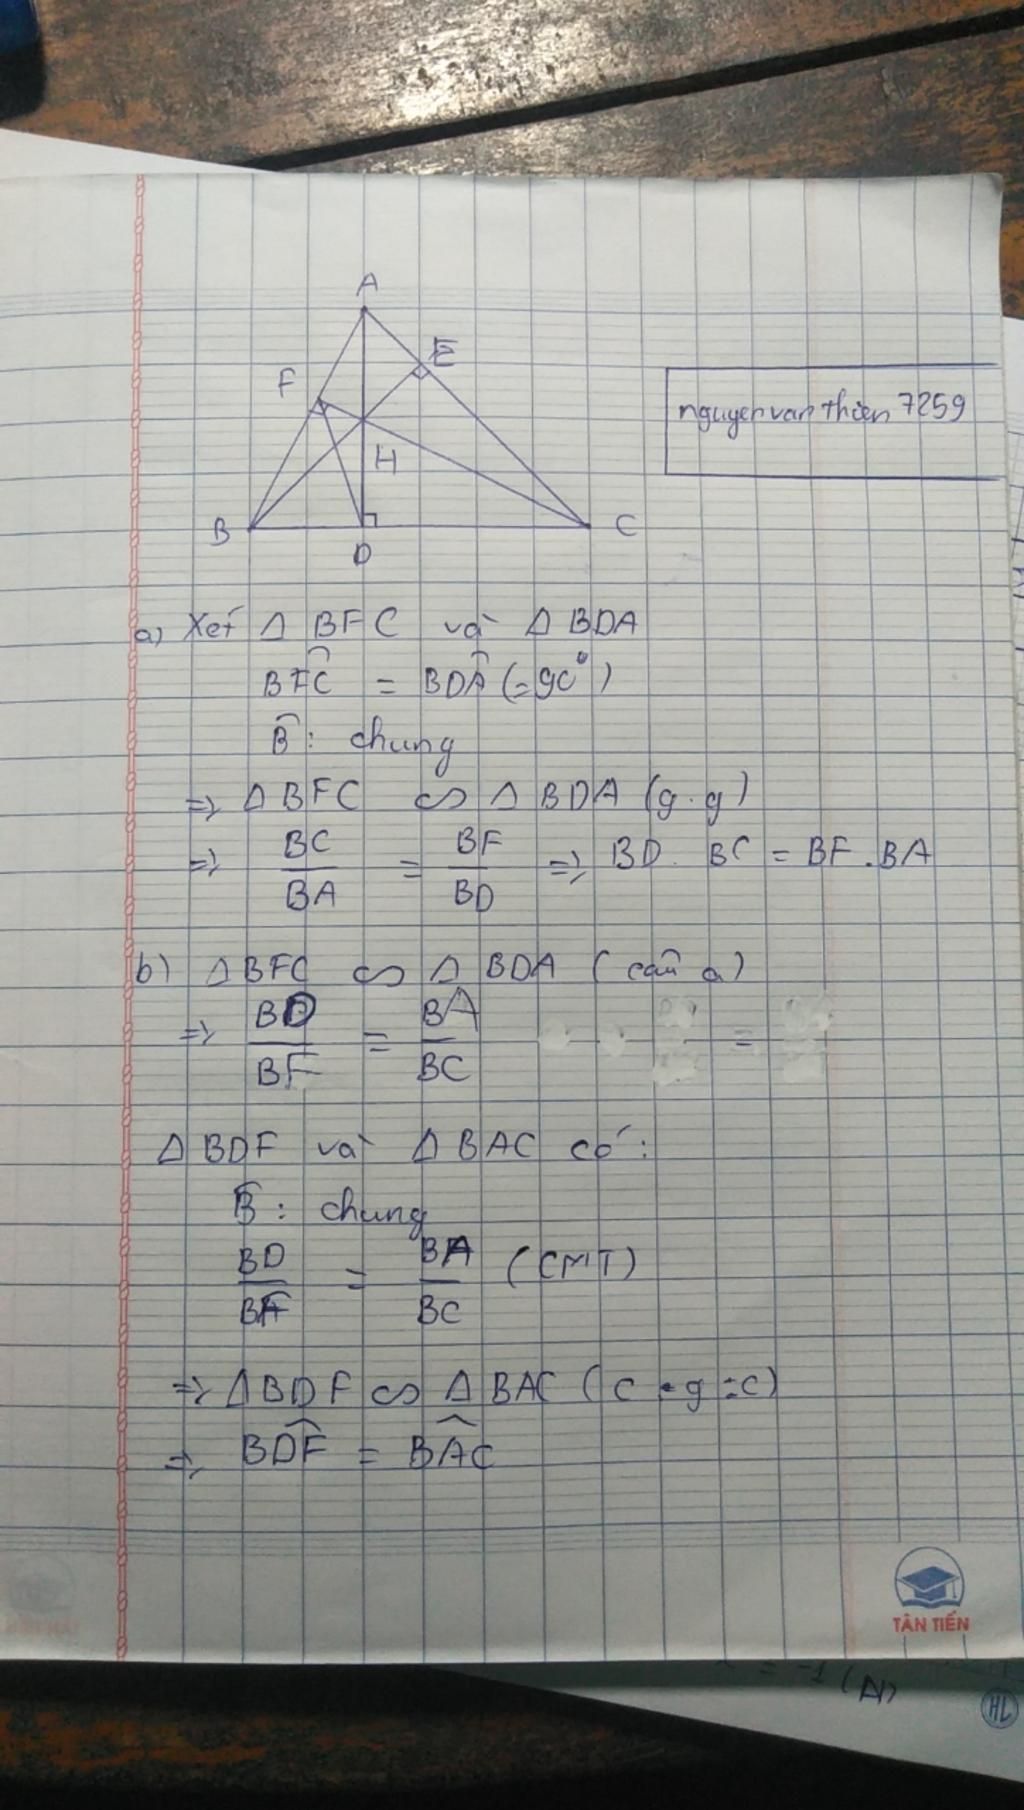 A
F
E
H
B
D
C
nguyenvanthien 7259
a) Xét Δ BFC và Δ BDA
BFC^ = BDA^ (= 90°)
B^ : chung
=> Δ BFC ∽ Δ BDA (g.g)
=> BC/BA = BF/BD => BD . BC = BF . BA
b) Δ BFC ∽ Δ BDA ( câu a)
=> BD/BF = BA/BC
=
Δ BDF và Δ BAC có :
B^ : chung
BD/BF = BA/BC (CMT)
=> Δ BDF ∽ Δ BAC ( c . g . c)
=> BDF^ = BAC^
TÂN TIẾN
= -1 (N)
HL